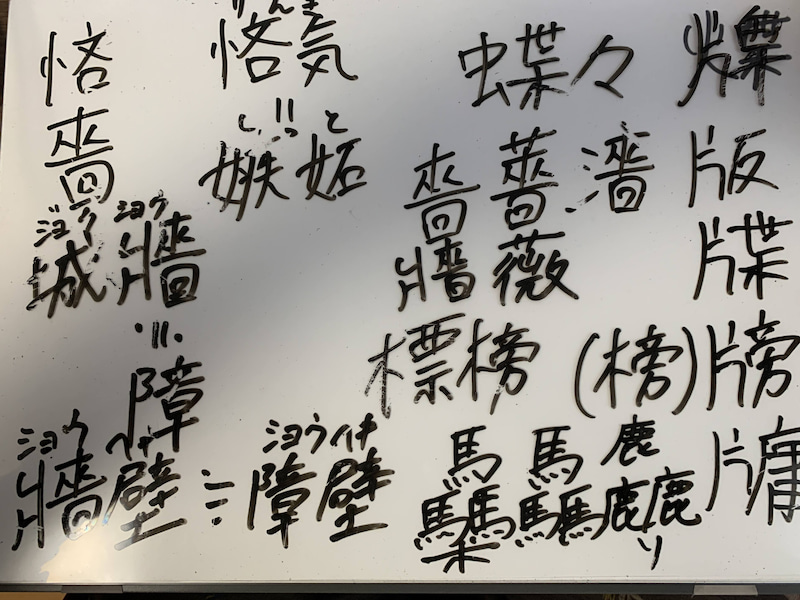 悋
嗇
りんき
悋気
しっと
嫉妬
ジョウ ショウ
城牆
障
ショウヘキ
牆壁≒障壁
ショウヘキ
蝶々
嗇薔濇
牆薇
標榜(榜)
馬馬鹿
驫鹿鹿
版
牒
牓
牗